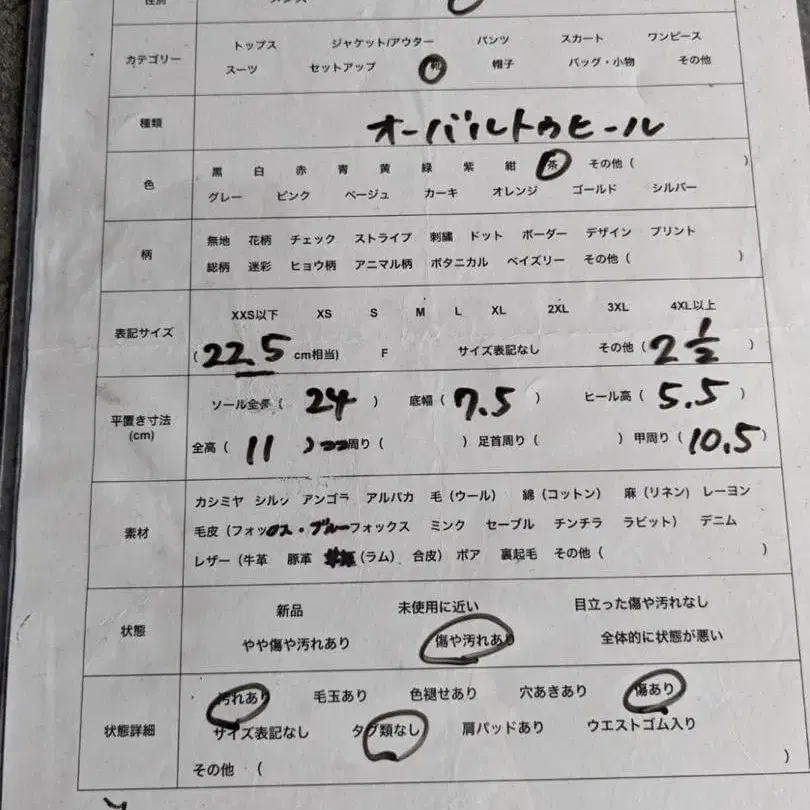 性別 メンズ
カテゴリー トップス ジャケット/アウター パンツ スカート ワンピース
スーツ セットアップ 靴 帽子 バッグ・小物 その他
種類 オーバルトゥヒール
色 黒 白 赤 青 黄 緑 紫 紺 茶 その他 ( )
グレー ピンク ベージュ カーキ オレンジ ゴールド シルバー
柄 無地 花柄 チェック ストライプ 刺繍 ドット ボーダー デザイン プリント
総柄 迷彩 ヒョウ柄 アニマル柄 ボタニカル ペイズリー その他 ( )
表記サイズ XXS以下 XS S M L XL 2XL 3XL 4XL以上
(22.5 cm相当) F サイズ表記なし その他 (2 1/2)
平置き寸法 (cm) ソール全長 ( 24 ) 底幅 ( 7.5 ) ヒール高 ( 5.5 )
全高 ( 11 ) 周り ( ) 足首周り ( ) 甲周り (10.5)
素材 カシミヤ シルク アンゴラ アルパカ 毛 (ウール) 綿 (コットン) 麻 (リネン) レーヨン
毛皮 (フォックス・ブルーフォックス ミンク セーブル チンチラ ラビット) デニム
レザー (牛革 豚革 (ラム) 合皮) ボア 裏起毛 その他 ( )
状態 新品 未使用に近い 目立った傷や汚れなし
やや傷や汚れあり 傷や汚れあり 全体的に状態が悪い
状態詳細 汚れあり 毛玉あり 色褪せあり 穴あきあり 傷あり
サイズ表記なし タグ類なし 肩パッドあり ウエストゴム入り
その他 ( )